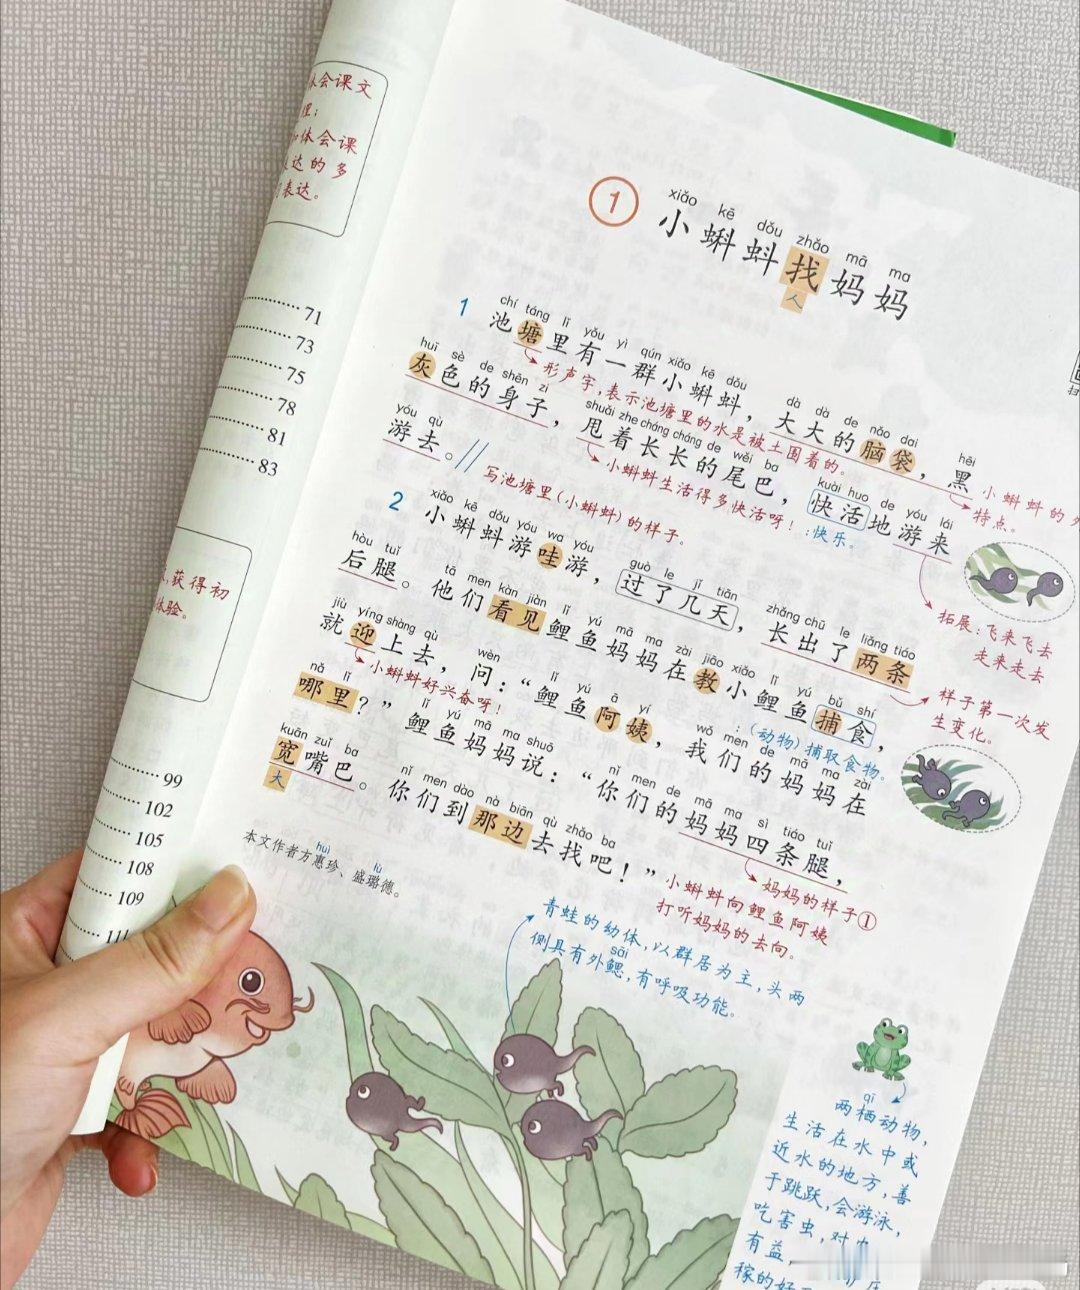 体会课文
理：
体会课
达的多
表达。
71
73
75
78
81
83
获得初
体验。
99
102
105
108
109
1
xiǎo kē dǒu zhǎo mā ma
小蝌蚪找妈妈
人
1
chí táng lǐ yǒu yì qún xiǎo kē dǒu
池塘里有一群小蝌蚪，
dà dà de nǎo dai
大大的脑袋，
hēi
黑
形声字，表示池塘里的水是被土围着的。
小蝌蚪的外
特点。
huī sè de shēn zi
灰色的身子，
shuǎi zhe cháng cháng de wěi ba
甩着长长的尾巴，
kuài huo de yóu lái
快活地游来
小蝌蚪生活得多快活呀！
：快乐。
yóu qù
游去。
写池塘里（小蝌蚪）的样子。
拓展：飞来飞去
走来走去
2
xiǎo kē dǒu yóu wa yóu
小蝌蚪游哇游，
guò le jǐ tiān
过了几天，
zhǎng chū le liǎng tiáo
长出了两条
样子第一次发
生变化。
hòu tuǐ
后腿。
tā men kàn jiàn lǐ yú mā ma zài jiāo xiǎo lǐ yú bǔ shí
他们看见鲤鱼妈妈在教小鲤鱼捕食，
：（动物）捕取食物。
jiù yíng shàng qù
就迎上去，
wèn
问：
lǐ yú ā yí
“鲤鱼阿姨，
wǒ men de mā ma zài
我们的妈妈在
小蝌蚪好兴奋呀！
nǎ lǐ
哪里？”
lǐ yú mā ma shuō
鲤鱼妈妈说：
nǐ men de mā ma sì tiáo tuǐ
“你们的妈妈四条腿，
妈妈的样子①
kuān zuǐ ba
宽嘴巴。
nǐ men dào nà biān qù zhǎo ba
你们到那边去找吧！”
大
小蝌蚪向鲤鱼阿姨
打听妈妈的去向。
huì lù
本文作者方惠珍、盛璐德。
青蛙的幼体，以群居为主，头两
sāi
侧具有外鳃，有呼吸功能。
qī
两栖动物，
生活在水中或
近水的地方，善
于跳跃，会游泳，
吃害虫，对
有益，
稼的好